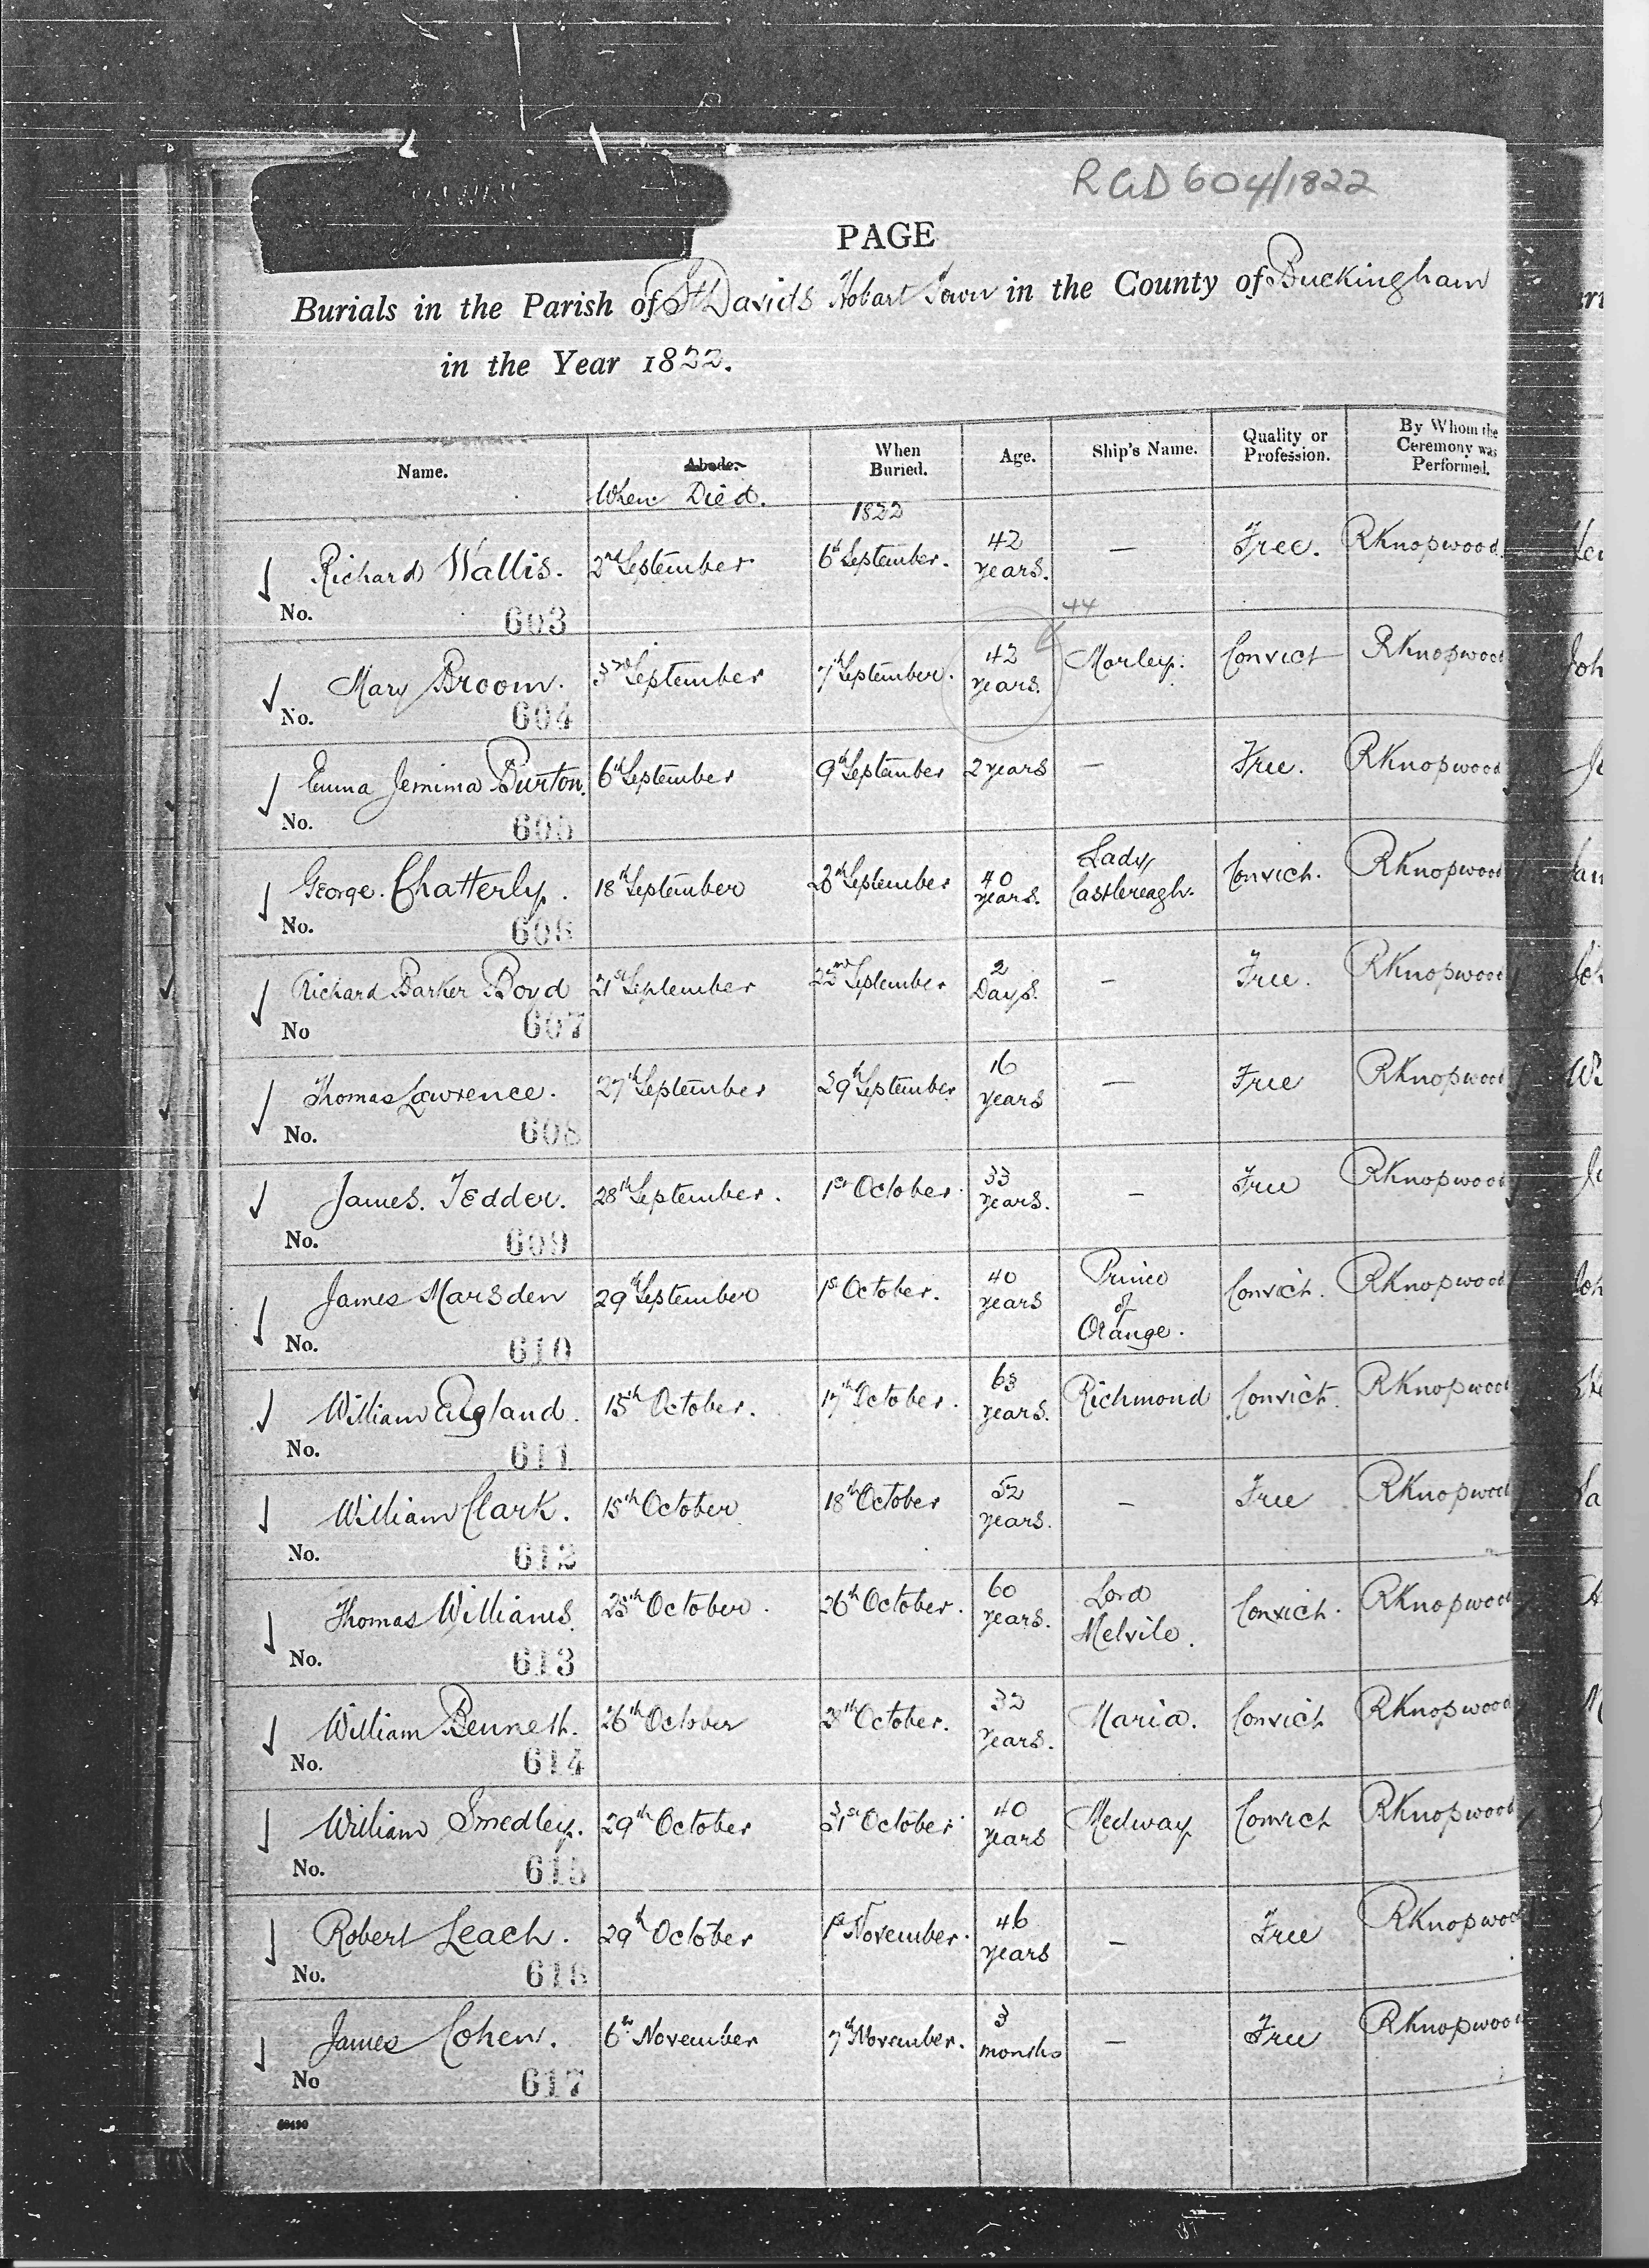 RGD 604/1822
PAGE
Burials in the Parish of St Davids Hobart Town in the County of Buckingham
in the Year 1822.
Name. Abode. When Buried. Age. Ship's Name. Quality or Profession. By Whom the Ceremony was Performed.
When Died. 1822
Richard Wallis. 2nd September 6th September. 42 years. — Free. RKnopwood.
No. 603
44
Mary Broom. 3rd September 7th September. 42 years. Morley. Convict RKnopwood
No. 604
Emma Jemima Burton. 6th September 9th September 2 years — Free. RKnopwood
No. 605
George. Chatterly. 18th September September 40 years. Lady Castlereagh. Convict. RKnopwood
No. 606
Richard Barker Boyd 21st September September 2 Days. — Free. RKnopwood
No 607
Thomas Lawrence. 27th September 29th September 16 years — Free RKnopwood
No. 608
James. Tedder. 28th September. 1st October. 33 years. — Free RKnopwood
No. 609
James Marsden 29th September 1st October. 40 years Prince of Orange. Convict. RKnopwood
No. 610
William England. 15th October. 17th October. 63 years. Richmond Convict. RKnopwood
No. 611
William Clark. 15th October 18th October 52 years. — Free RKnopwood
No. 612
Thomas Williams. 25th October. 26th October. 60 years. Lord Melvile. Convict. RKnopwood
No. 613
William Bennett. 26th October October. 32 years. Maria. Convict RKnopwood
No. 614
William Smedley. 29th October 31st October 40 years Medway Convict RKnopwood
No. 615
Robert Leach. 29th October 1st November. 46 years — Free RKnopwood
No. 616
James Cohen. 6th November 7th November. 3 months — Free RKnopwood
No 617